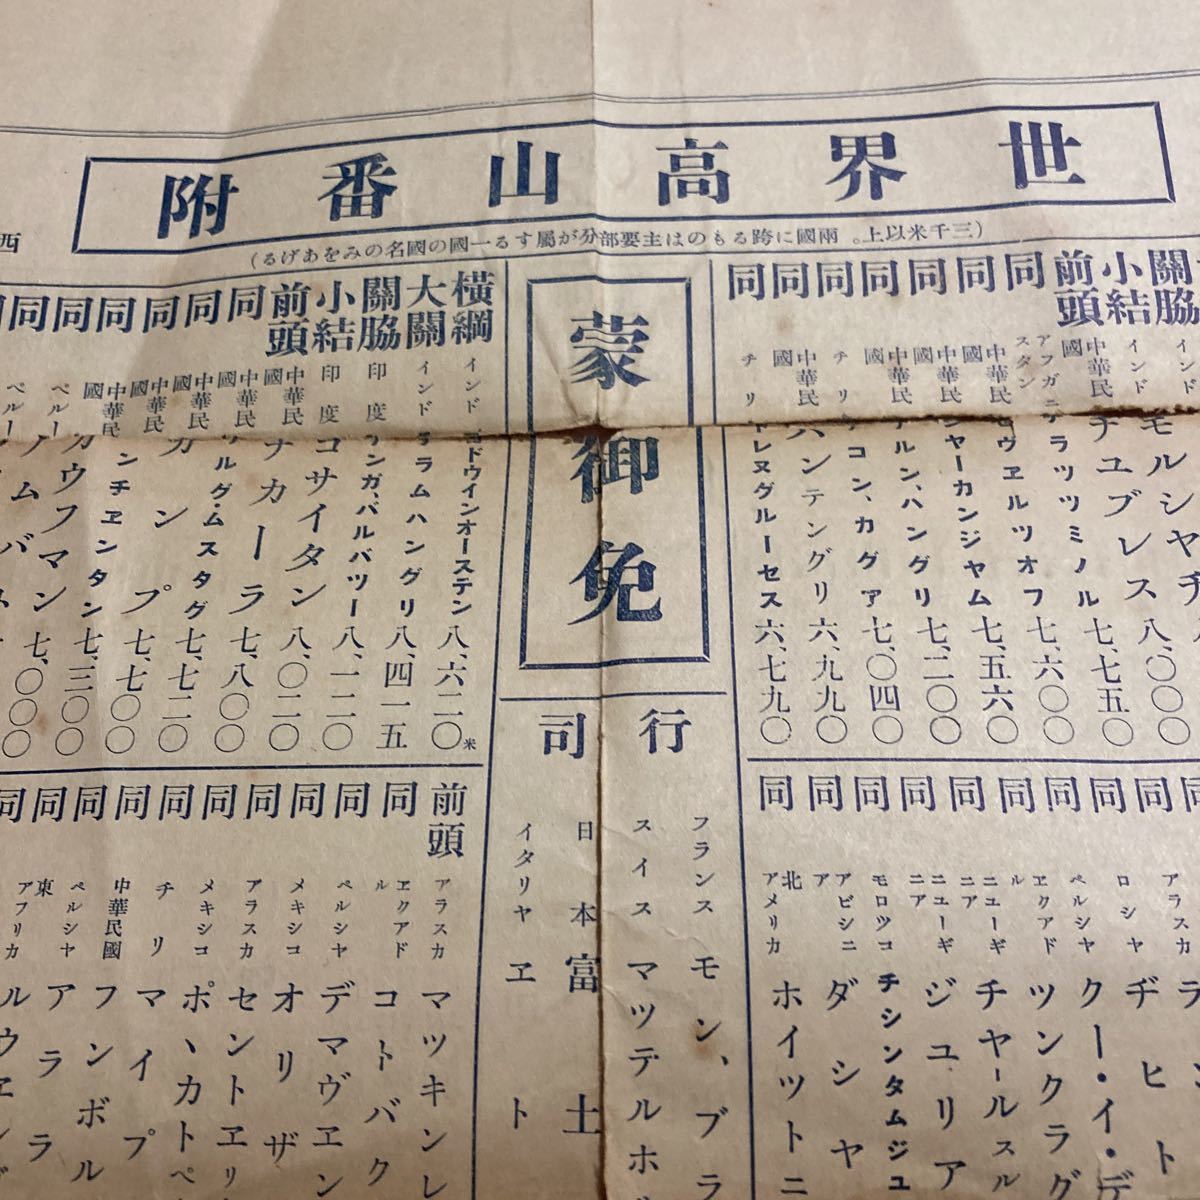 世界高山番附
(三千米以上。兩國に跨るものは主要部分が屬する一國の國名のみをあげる)
西
蒙御免
關脇 インド モルシヤヂ 八、〇〇〇
小結 インド チユブレス 七、七五〇
前頭 中華民國 ラツツミノル 七、六〇〇
同 アフガニスタン
同 中華民國 ヤーカンジヤム 七、五六〇
同 中華民國 ハングリ 七、二〇〇
同 中華民國
同 チリ コン、カグア 七、〇四〇
同 中華民國 ハンテングリ 六、九九〇
同 チリ トレヌグルーセス 六、七九〇
横綱 インド ゴドウインオーステン 八、六二〇米
大關 インド ラムハングリ 八、四一五
關脇 印度 ンガ、バルバツー 八、一二〇
小結 印度 コサイタン 八、〇二〇
前頭 中華民國 ナカーラ 七、八〇〇
同 中華民國 ルグ・ムスタグ 七、七二〇
同 中華民國 カンプ 七、七〇〇
同 中華民國 ンチエンタン 七、三〇〇
同 中華民國 カウフマン 七、〇〇〇
同 ペルー
同 ペルー
行司
フランス モン、ブラ
スイス マツテルホル
日本 富士
イタリヤ エト
同 アラスカ
同 ロシヤ ヂヒト
同 ペルシヤ クー・イ・デ
同 エクアドル ツンクラグ
同 ニューギニア チヤールスル
同 ニューギニア ジユリア
同 モロツコ チシンタムジユ
同 アビシニア ダシヤ
同 北アメリカ ホイツトニ
前頭 アラスカ マツキンレ
同 エクアドル コトバク
同 ペルシヤ デマヴエン
同 メキシコ オリザ
同 アラスカ セントエリ
同 メキシコ ポ、カトペ
同 チリ マイプ
同 中華民國 フンボル
同 ペルシヤ アララ
同 東アフリカ ルウエンゾ